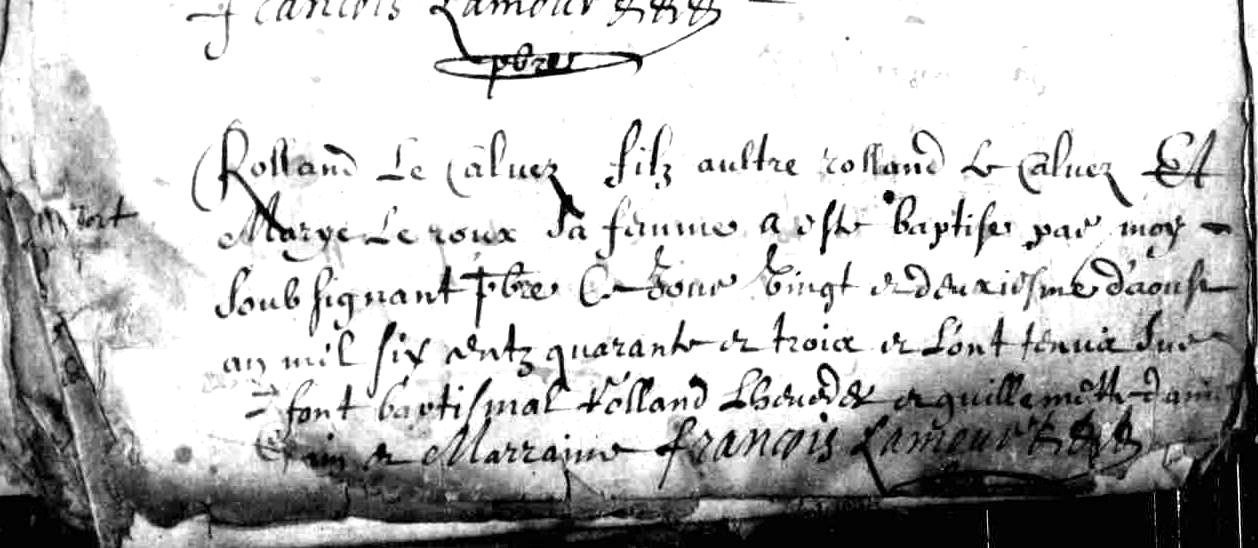 François Lamour
pbre
Rolland Le Calvez filz aultre rolland Le Calvez Et
mort
Marye Le roux Sa femme a este baptise par moy
Soub signant pbre Ce Jour Vingt et deuxiesme d'aoust
an mil six centz quarante et troix et L'ont tenuz Sur
font baptismal Rolland et guillemette
ain et Marraine François Lamour